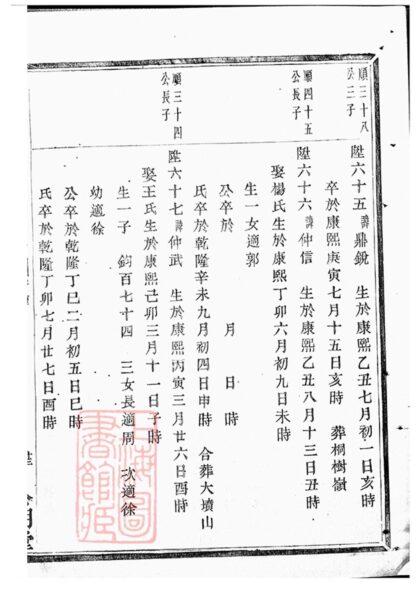 順三十八
公二子
陞六十五 諱鼎銳 生於康熙乙丑七月初一日亥時
卒於康熙庚寅七月十五日亥時 葬桐樹嶺
順四十五
公長子
陞六十六 諱仲信 生於康熙乙丑八月十三日丑時
娶楊氏生於康熙丁卯六月初九日未時
生一女適郭
公卒於 月 日 時
氏卒於乾隆辛未九月初四日申時 合葬大墳山
順三十四
公長子
陞六十七 諱仲武 生於康熙丙寅三月廿六日酉時
娶王氏生於康熙己卯三月十一日子時
生一子 鈞百七十四 三女長適周 次適徐
幼適徐
公卒於乾隆丁巳二月初五日巳時
氏卒於乾隆丁卯七月廿七日酉時